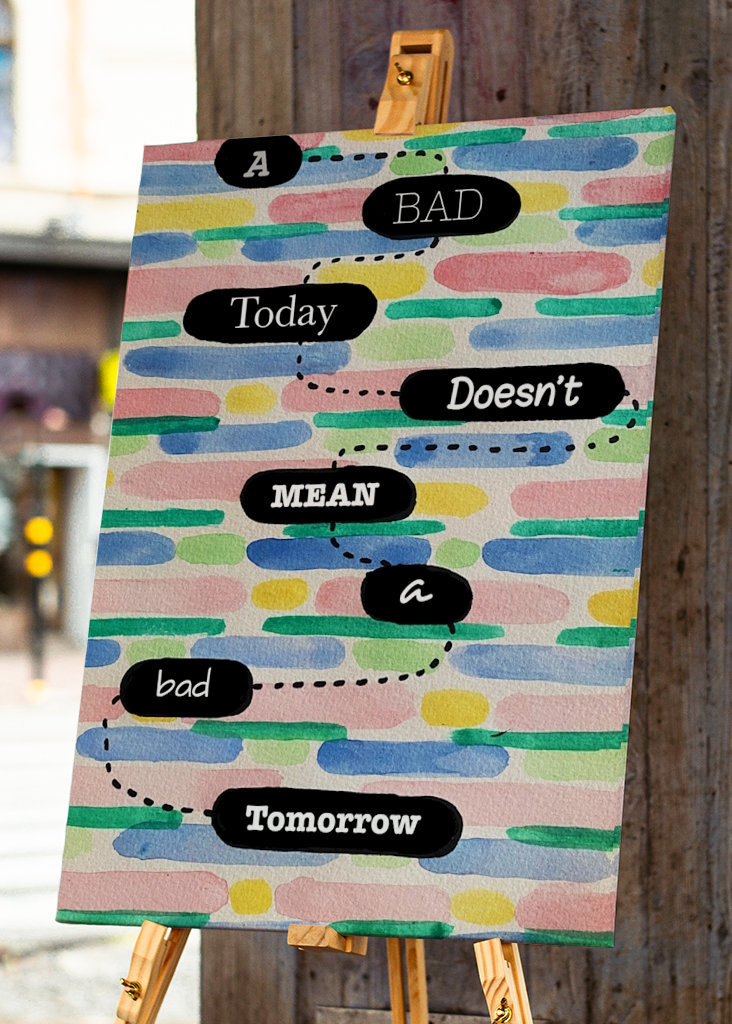 A
BAD
Today
Doesn't
MEAN
a
bad
Tomorrow